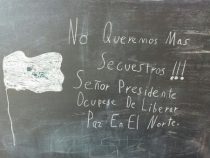 No Queremos Mas
Secuestros !!!
Señor Presidente
Ocupepe De Liberar
Paz En El Norte.